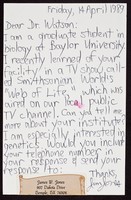 Friday, 14 April 1989
Dear Dr. Watson:
I am a graduate student in
biology at Baylor University
I recently learned of your
facility in a TV show call-
ed Smithsonian World's
"Web of Life," which was
aired on our local public
TV channel. Can you tell me
more about your institution?
I am especially interested in
genetics. Would you include
your telephone number in
your response & send your
response to
Thanks,
James W. Jones